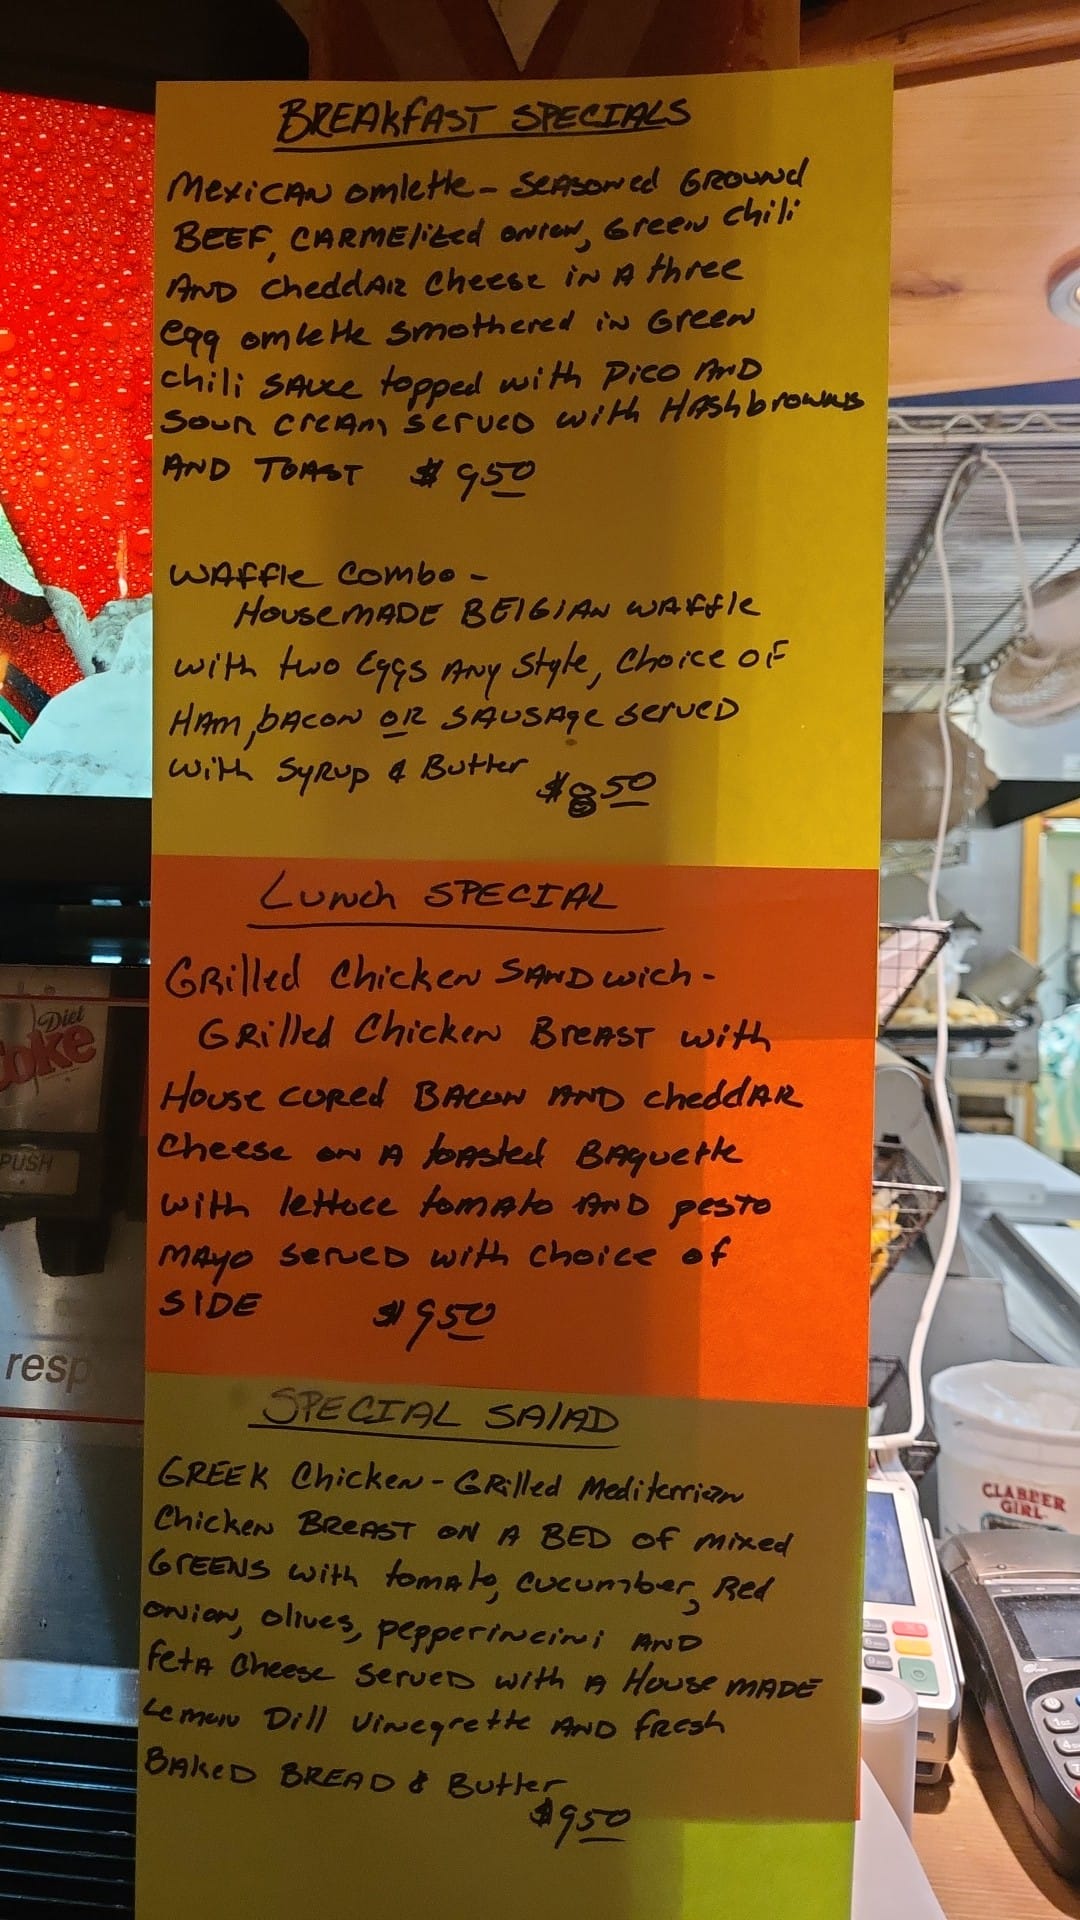 BREAKFAST SPECIALS
Mexican omlette - Seasoned Ground
Beef, Carmelized onion, Green chili
And cheddar cheese in a three
egg omlette smothered in Green
chili sauce topped with Pico And
Sour cream served with Hashbrowns
AND TOAST $9.50
Waffle Combo -
Housemade Belgian waffle
with two eggs any style, choice of
Ham, bacon or sausage served
with Syrup & Butter $8.50
Lunch SPECIAL
Grilled Chicken Sandwich -
Grilled Chicken Breast with
House cured Bacon and cheddar
cheese on a toasted Baguette
with lettuce tomato and pesto
mayo served with choice of
SIDE $9.50
SPECIAL SALAD
GREEK Chicken - Grilled Mediterrian
Chicken Breast on a bed of mixed
Greens with tomato, cucumber, Red
onion, olives, pepperincini and
feta cheese served with a House made
Lemon Dill Vinegrette and fresh
Baked Bread & Butter
$9.50
Diet
Coke
PUSH
resp
CLABBER
GIRL